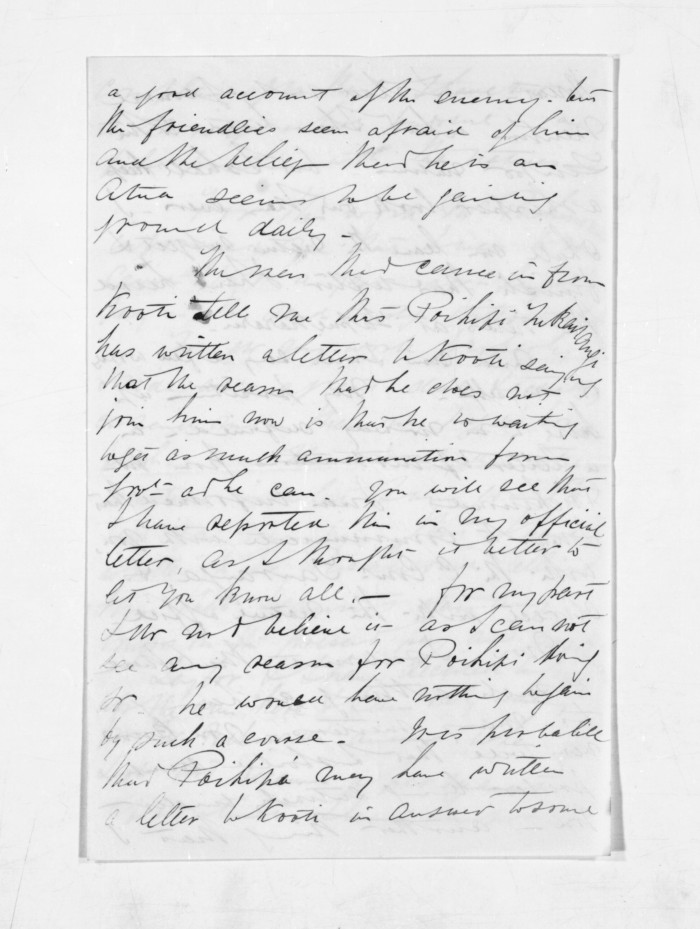 a good account of the enemy. but
the friendlies seem afraid of him
and the belief that he is an
Atua seems to be gaining
ground daily –
The men that came in from
Kooti tell me that Poihipi Tukairangi
has written a letter to Kooti saying
that the reason that he does not
join him now is that he is waiting
to get as much ammunition from
Govt as he can. You will see that
I have reported this in my official
letter, as I thought it better to
let you know all. – for my part
I do not believe it as I can not
see any reason for Poihipi doing
so. he would have nothing to gain
by such a course – It is probable
that Poihipi may have written
a letter to Kooti in answer to some